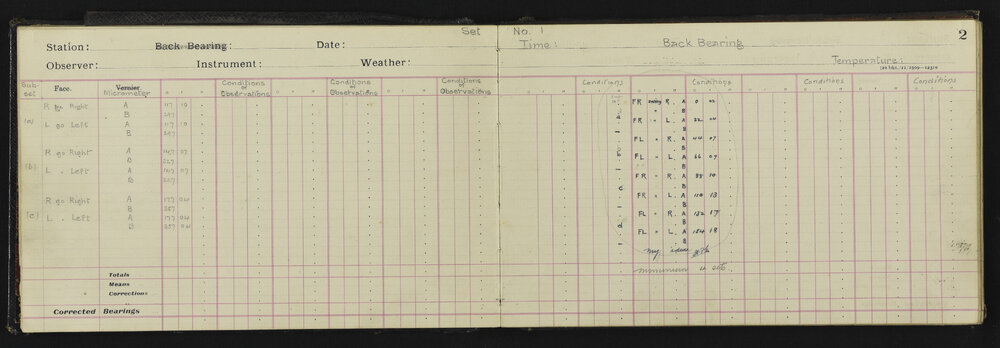 Set No. 1
2
Station: Back Bearing: Date: Time: Back Bearing
Observer: Instrument: Weather: Temperature:
Sub-set Face. Vernier Micrometer ° ′ ″ Conditions or Observations ° ′ ″ Conditions or Observations ° ′ ″ Conditions or Observations ° ′ ″ Conditions ° ′ ″ Conditions ° ′ ″ Conditions ° ′ ″ Conditions
R go Right A 117 10
B 297
(a) L go Left A 117 10
B 297
R go Right A 147 07
B 327
(b) L " Left A 147 07
B 327
R go Right A 177 04
B 357
(c) L " Left A 177 04
B 357 04
FR swing R. A 0 02
" B
a FR " L. A 22 04
B
FL " R. A 44 07
B
b FL " L. A 66 09
B
FR " R. A 88 10
B
c FR " L. A 110 13
B
FL " R. A 132 17
B
d FL " L. A 154 18
B
my idea
minimum 4 sets
Totals
Means
" Corrections
Corrected Bearings